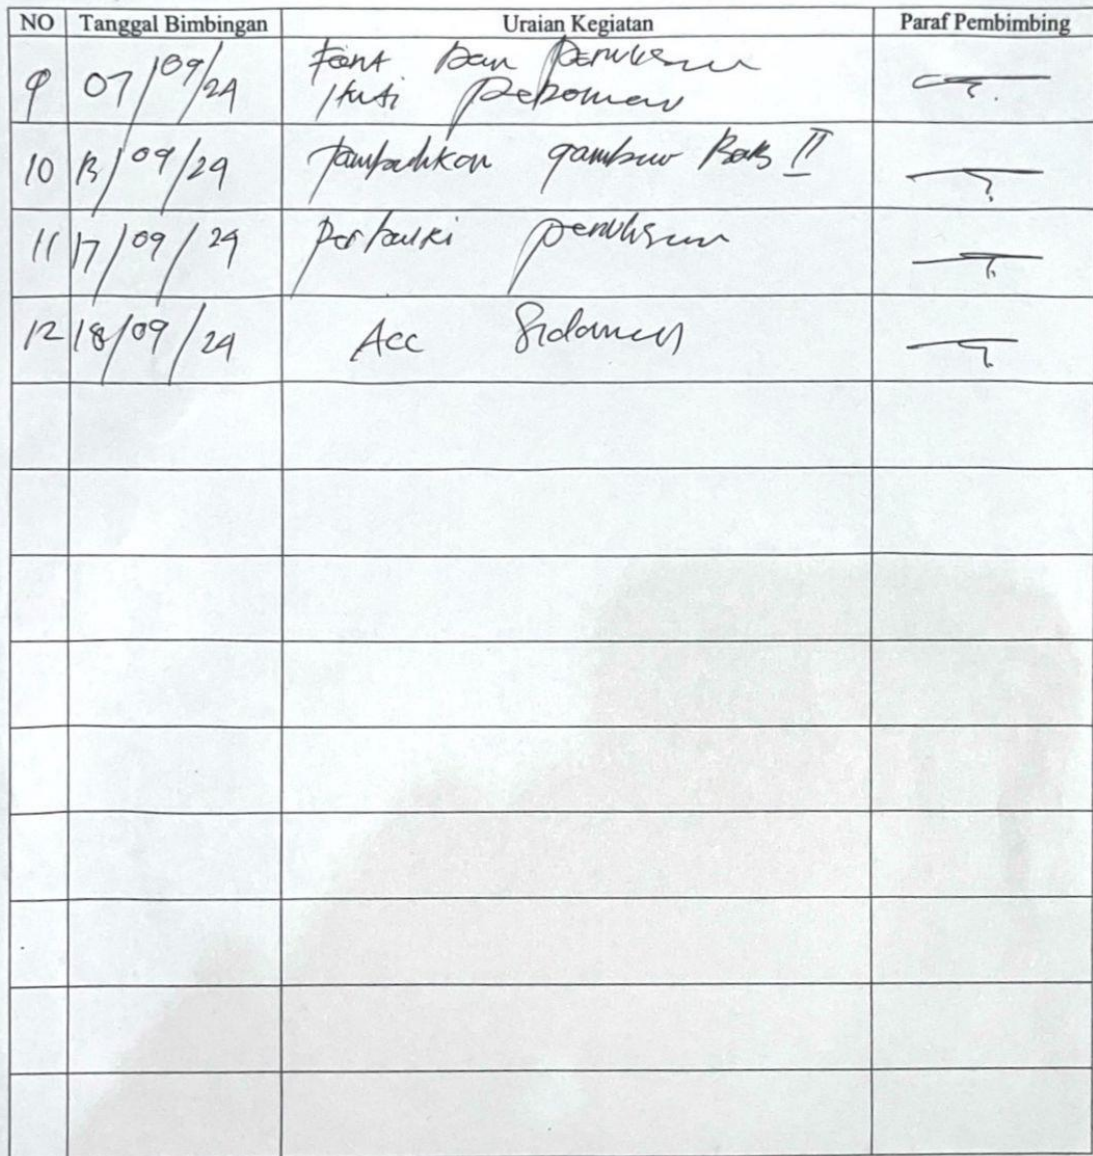 NO Tanggal Bimbingan Uraian Kegiatan Paraf Pembimbing
9 07/09/24 Font Dan Penulisan
Ikuti Pedoman
10 13/09/24 Tambahkan gambar Bab II
11 17/09/24 Perbaiki penulisan
12 18/09/24 Acc Sidang